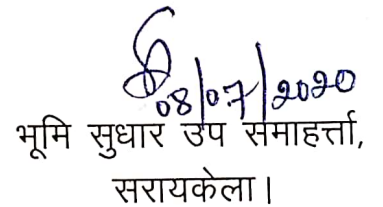 08/07/2020
भूमि सुधार उप समाहर्त्ता,
सरायकेला।